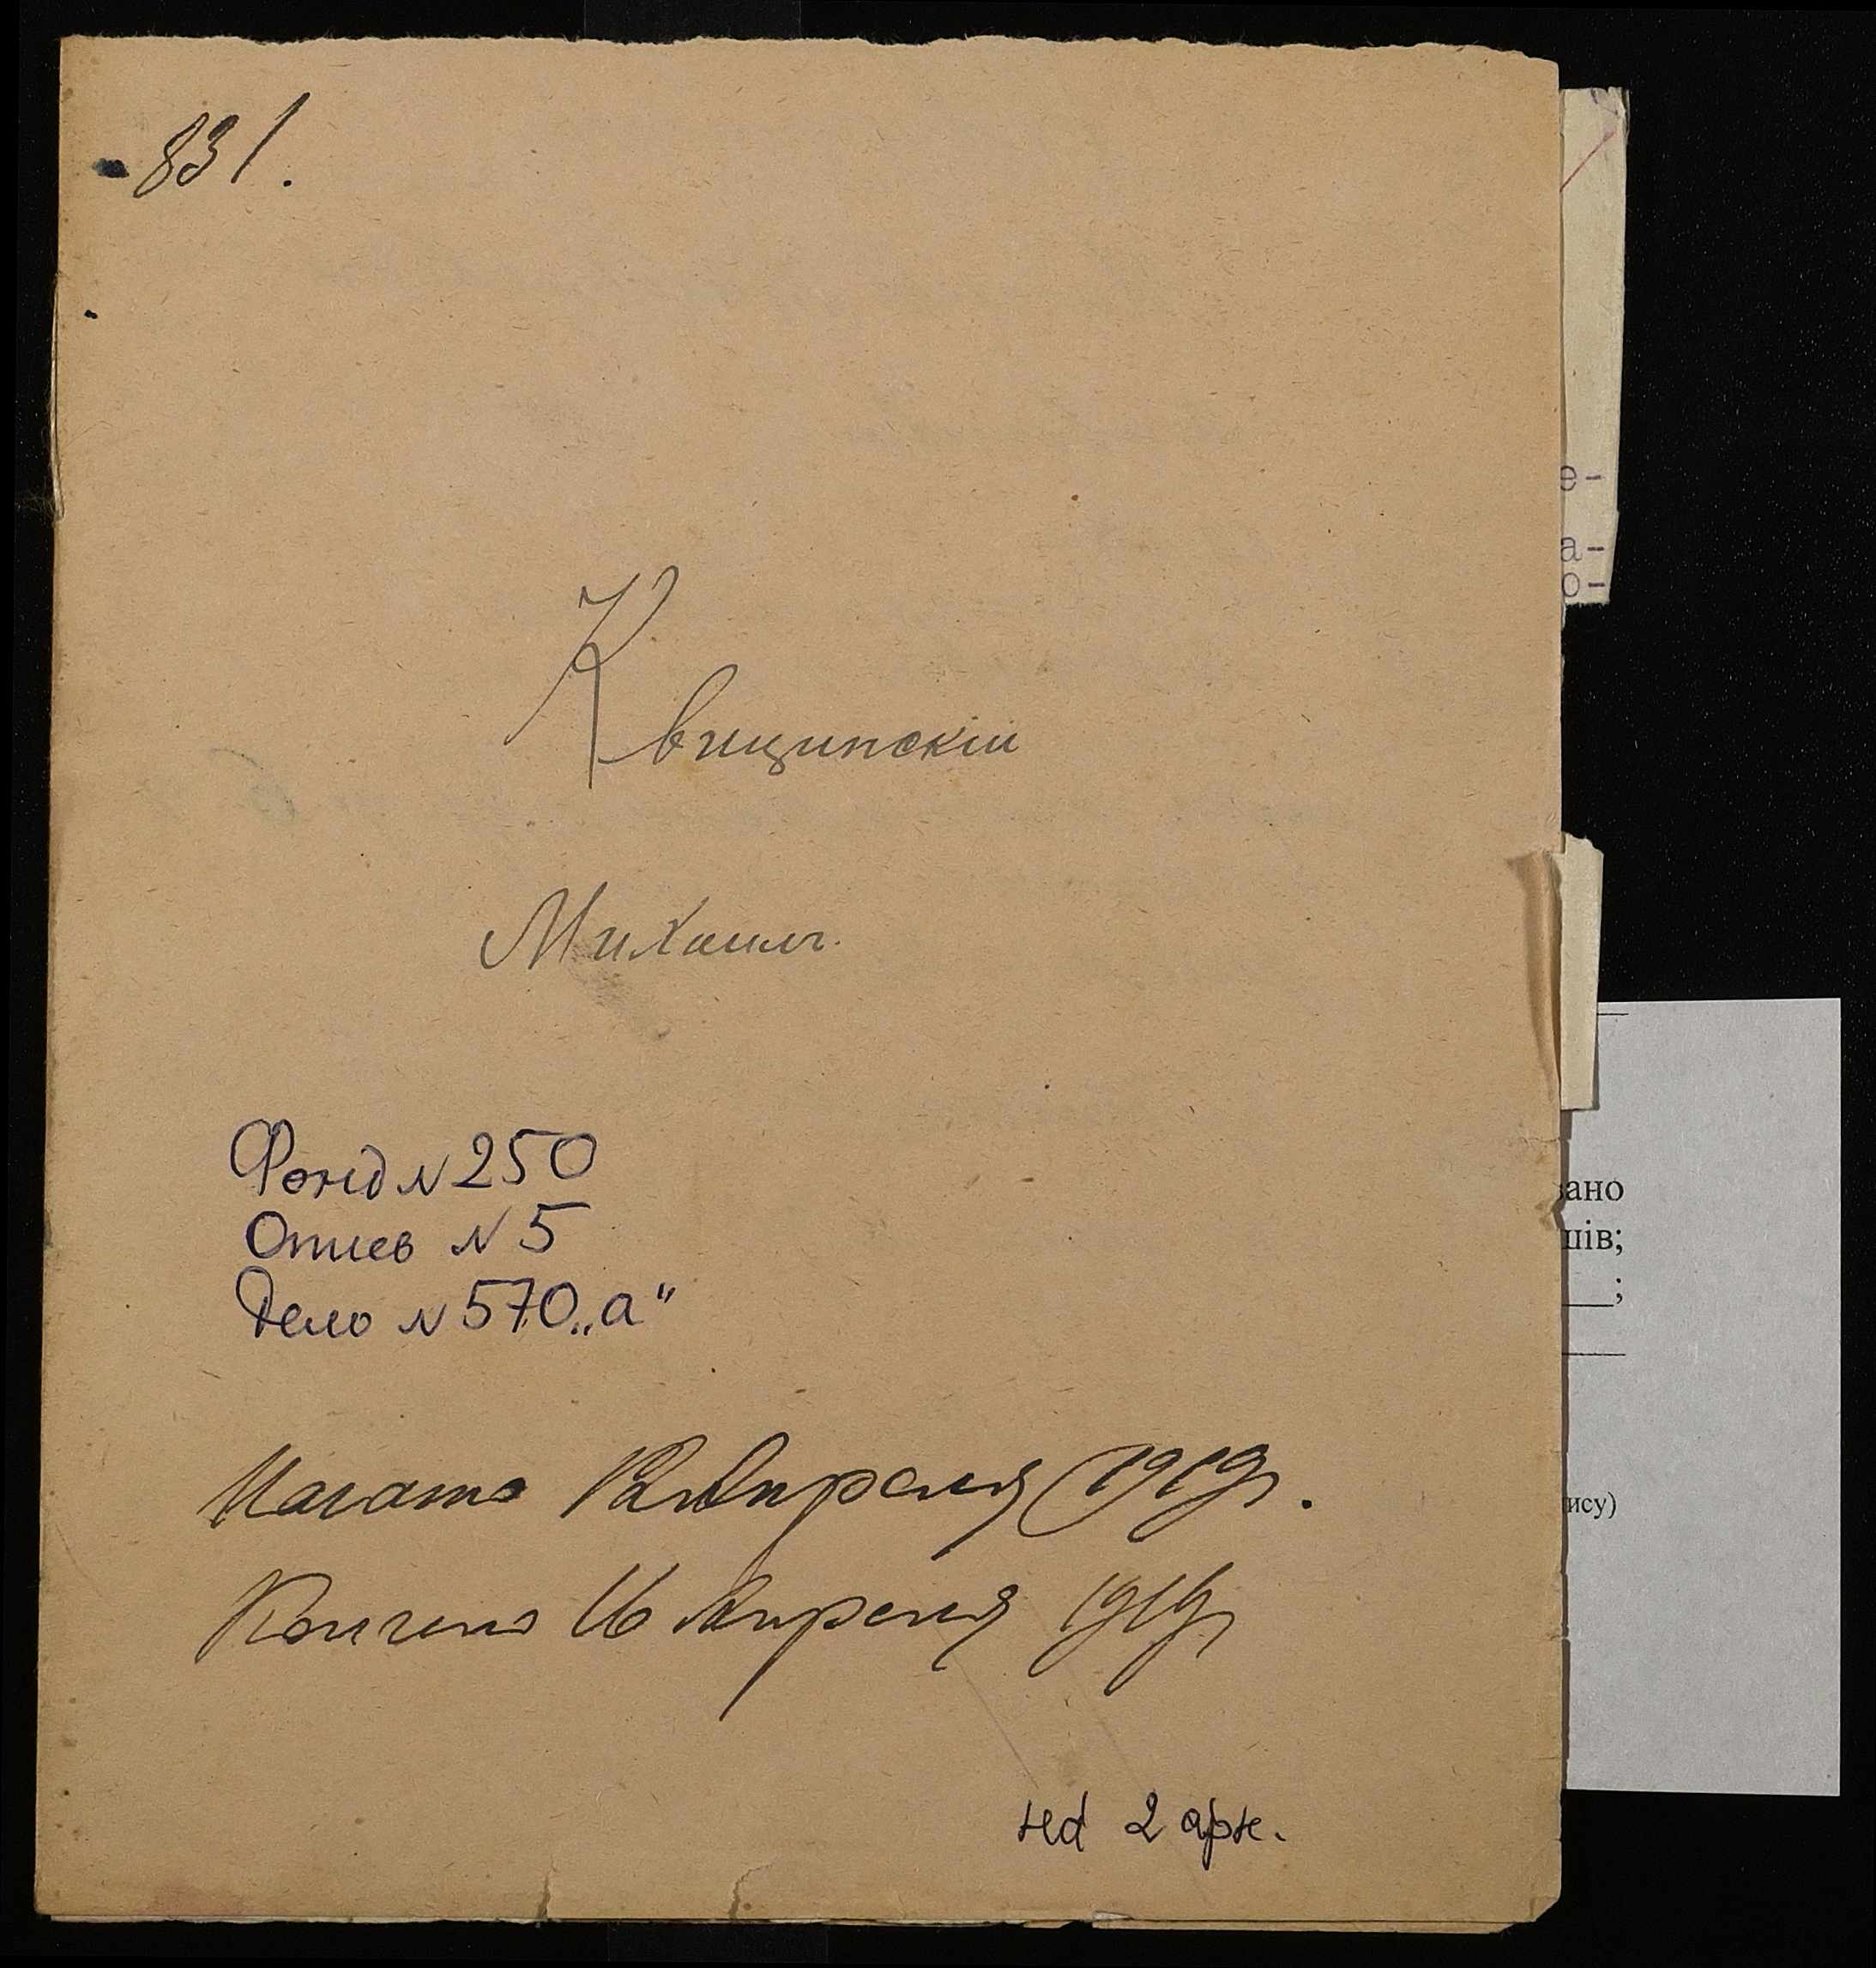 831.
Квицинскій
Михаилъ.
Фонд N 250
Опись N 5
Дело N 570 „а"
Начато 12 Апреля 1919 г.
Кончено 16 Апреля 1919 г.
на 2 арк.
е-
а-
о-
вано
шів;
;
ису)